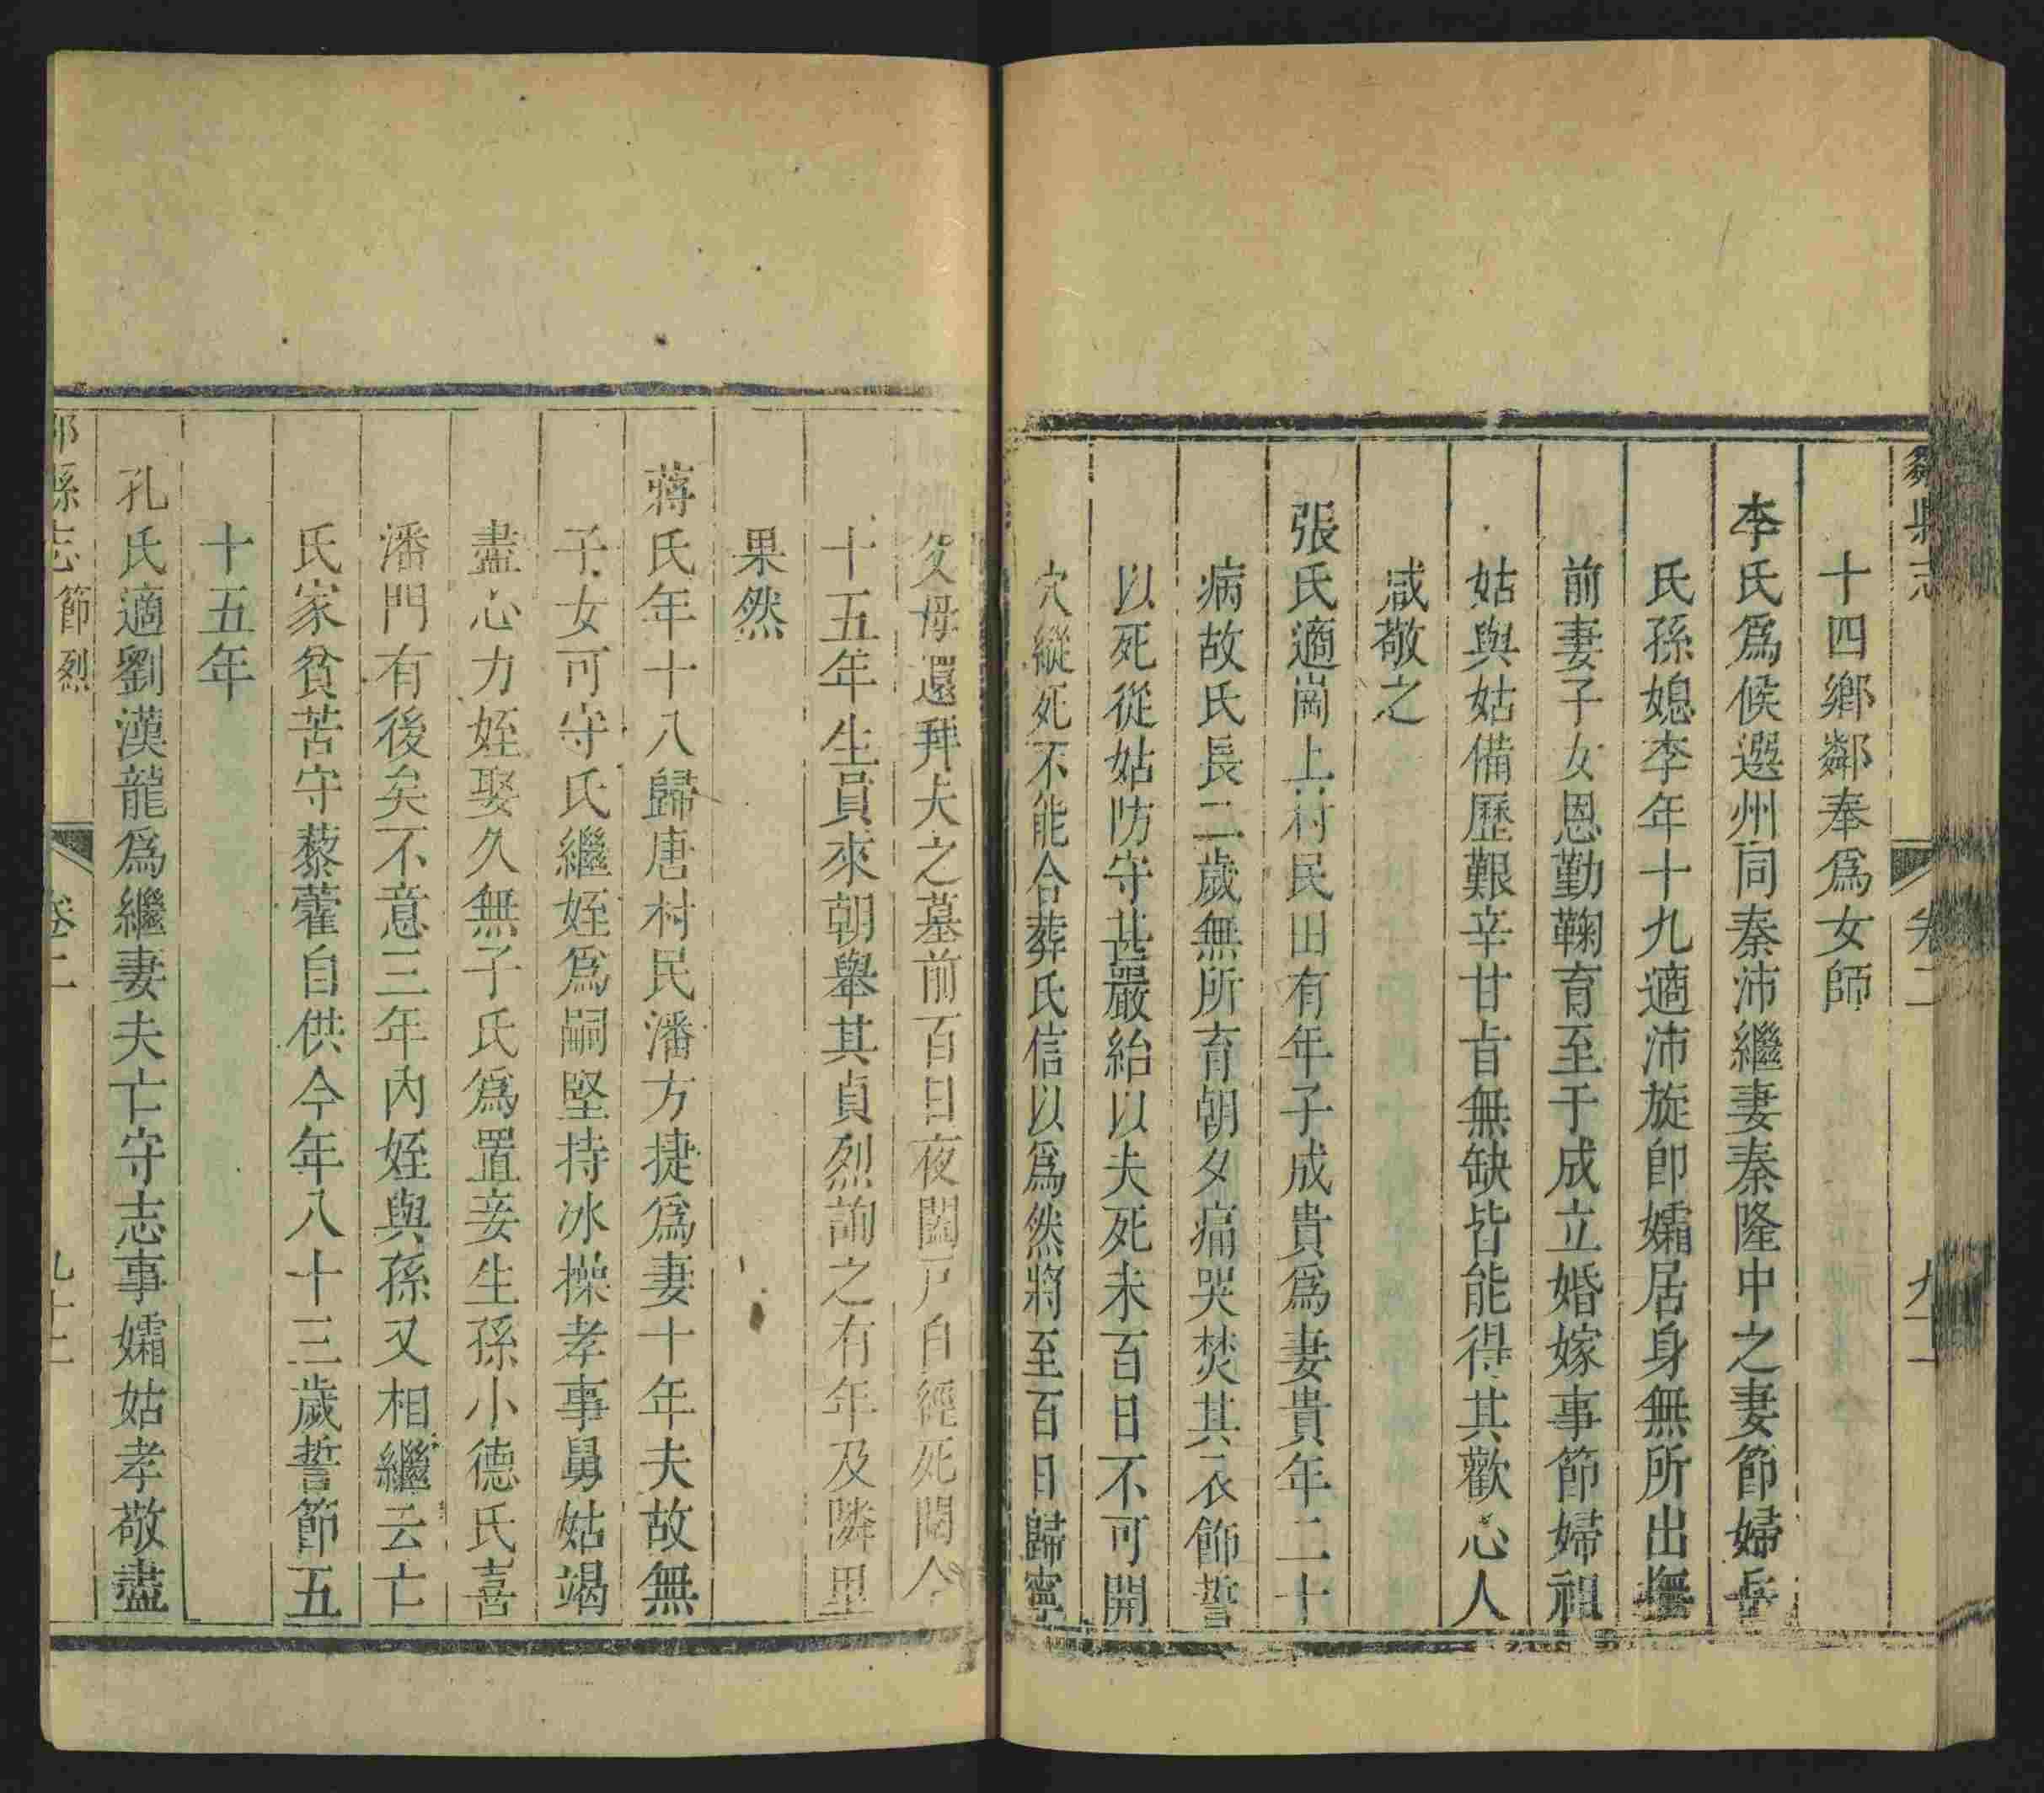 鄒縣志 卷二 九十一
十四鄉鄰奉爲女師
李氏爲候選州同秦沛繼妻秦隆中之妻節婦岳
氏孫媳李年十九適沛旋卽孀居身無所出撫
前妻子女恩勤鞠育至于成立婚嫁事節婦祖
姑與姑備歷艱辛甘旨無缺皆能得其歡心人
咸敬之
張氏適崗上村民田有年子成貴爲妻貴年二十
病故氏長二歲無所育朝夕痛哭焚其衣飾誓
以死從姑防守甚嚴紿以夫死未百日不可開
穴縱死不能合葬氏信以爲然將至百日歸寧
父母還拜夫之墓前百日夜闔戸自經死閱今
十五年生員來朝舉其貞烈詢之有年及隣里
果然
蔣氏年十八歸唐村民潘方捷爲妻十年夫故無
子女可守氏繼姪爲嗣堅持冰操孝事舅姑竭
盡心力姪娶久無子氏爲置妾生孫小德氏喜
潘門有後矣不意三年內姪與孫又相繼云亡
氏家貧苦守藜藿自供今年八十三歲誓節五
十五年
孔氏適劉漢龍爲繼妻夫亡守志事孀姑孝敬盡
縣志 節烈 卷二